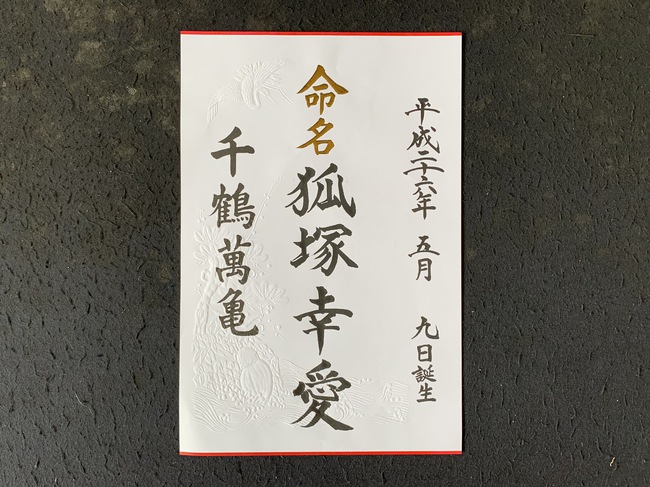 平成二十六年 五月 九日誕生
命名 狐塚幸愛
千鶴萬亀